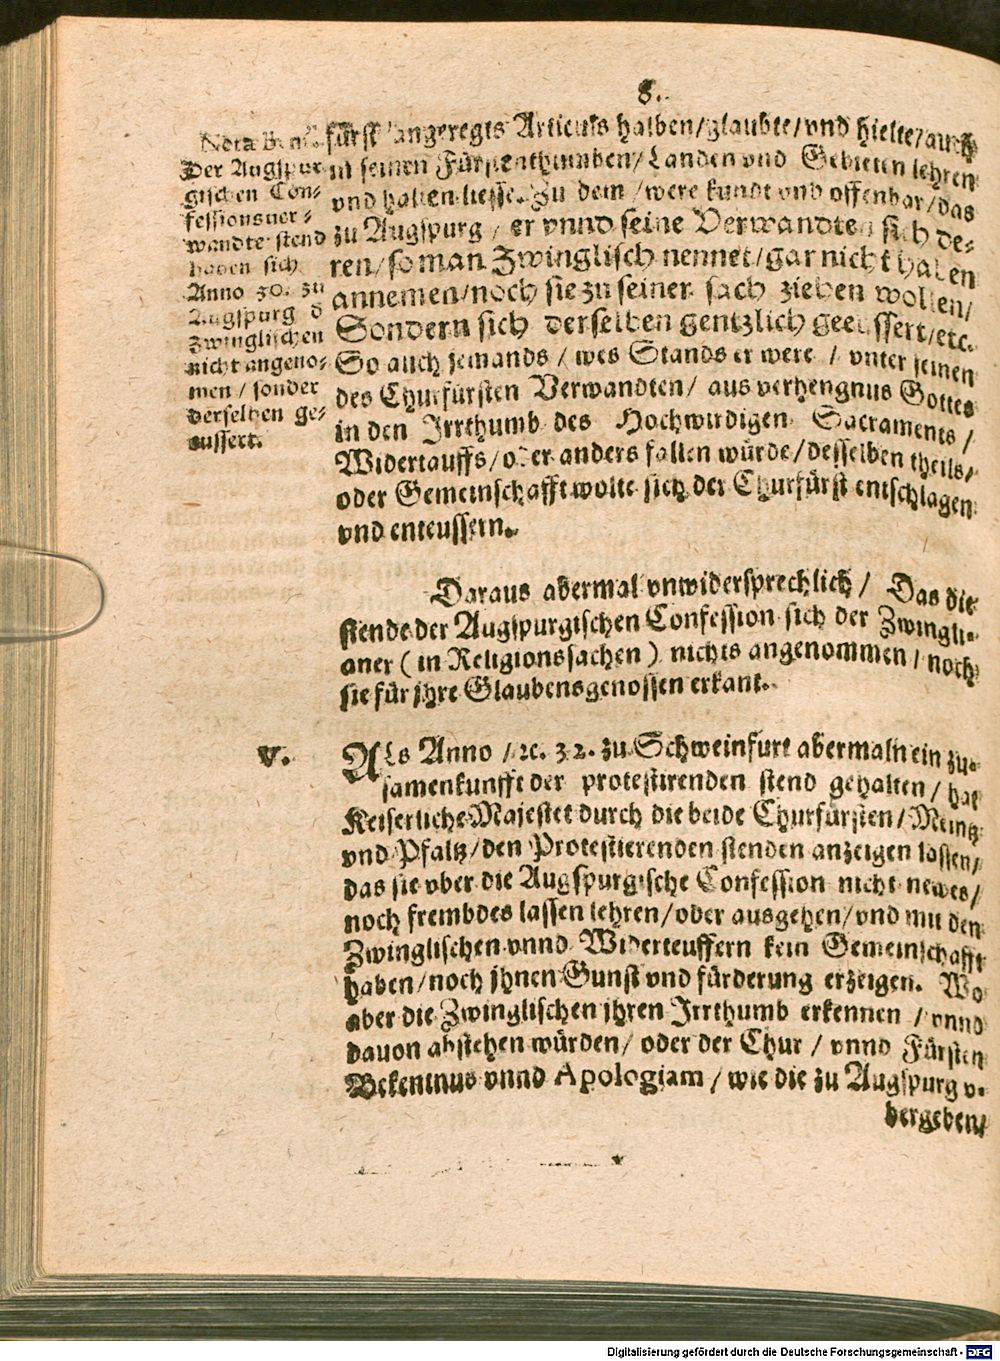 8.
Nota Bene.
Der Augspur
gischen Con-
fessionsver-
wandte stend
haben sich
Anno 30. zu
Augspurg d
Zwinglischen
nicht angeno-
men / sonder
derselben ge-
eussert.
fürst angeregts Articuls halben/glaubte/vnd hielte/auch
in seinen Fürstenthumben/Landen vnd Gebieten lehren
vnd halten liesse. Zu dem /were kundt vnd offenbar/das
zu Augspurg / er vnnd seine Verwandten sich de-
ren/so man Zwinglisch nennet/gar nicht haben
annemen/noch sie zu seiner sach ziehen wollen/
Sondern sich derselben gentzlich geeussert/etc.
So auch jemands / wes Stands er were / vnter seinen
des Churfürsten Verwandten/ aus verhengnus Gottes
in den Irrthumb des Hochwirdigen Sacraments /
Widertauffs/oder anders fallen würde/desselben theils/
oder Gemeinschafft wolte sich der Churfürst entschlagen
vnd enteussern.
Daraus abermal vnwidersprechlich / Das die
stende der Augspurgischen Confession sich der Zwingli-
aner ( in Religionssachen ) nichts angenommen / noch
sie für jhre Glaubensgenossen erkant.
V.
Als Anno /2c. 32. zu Schweinfurt abermaln ein zu-
samenkunfft der protestirenden stend gehalten / hat
Keiserliche Majestet durch die beide Churfürsten/Meintz
vnd Pfaltz/den Protestierenden stenden anzeigen lassen/
das sie vber die Augspurgische Confession nicht newes/
noch frembdes lassen lehren/oder ausgehen/vnd mit den
Zwinglischen vnnd Widerteuffern kein Gemeinschafft
haben/noch jhnen Gunst vnd fürderung erzeigen. Wo
aber die Zwinglischen jhren Irrthumb erkennen / vnnd
dauon abstehen würden/ oder der Chur / vnnd Fürsten
Bekentnus vnnd Apologiam / wie die zu Augspurg v-
bergeben/
Digitalisierung gefördert durch die Deutsche Forschungsgemeinschaft - DFG